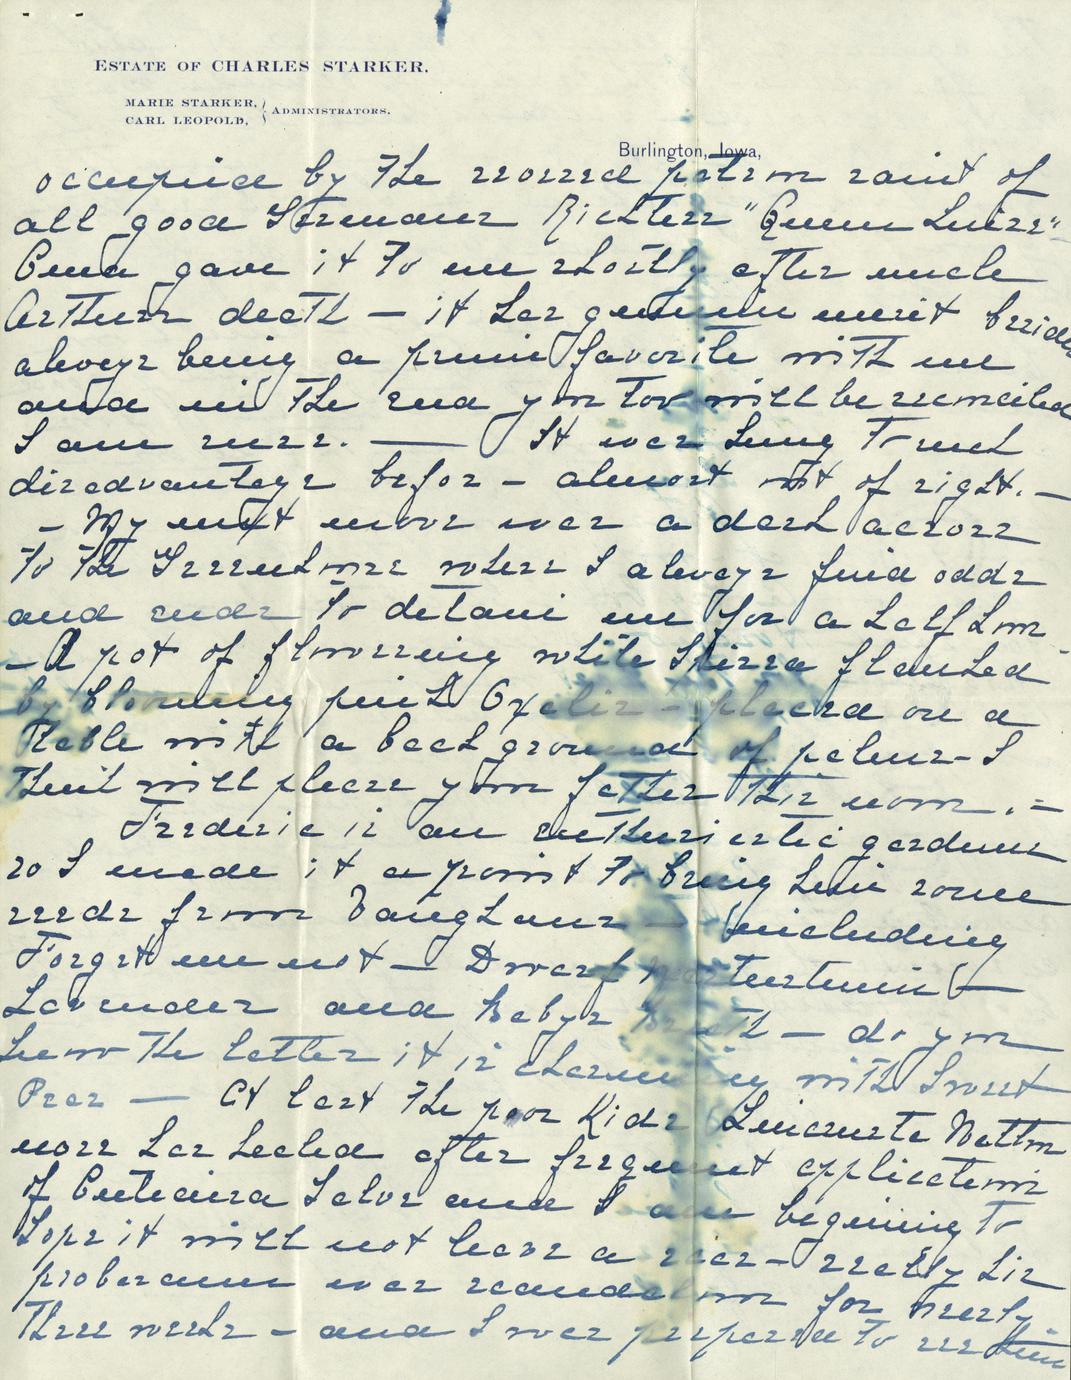 ESTATE OF CHARLES STARKER.
MARIE STARKER,
CARL LEOPOLD,
ADMINISTRATORS.
Burlington, Iowa,
occupied by the second patron saint of
all good Germans Richters "Queen Luise"
gave it to me shortly after uncle
Arthurs death — it has genuine merit besides
always being a prime favorite with me
and in the end you too will be reconciled
I am sure. — It was hung to much
disadvantage before – almost out of sight. —
– My next move was a dash across
to the Greenhouse where I always find odds
and ends to detain me for a half hour
– A pot of flowering white Spirea flanked
by blooming pink Oxalis – placed on a
Table with a back ground of palms – I
think will please your father this noon. –
Frederic is an enthusiastic gardener
so I made it a point to bring him some
seeds from Vaughans — including
Forget me not — Dwarf Nasturtium —
Lavender and Babys Breath — do you
know the latter it is charming with Sweet
Peas — At last the poor Kids
nose has healed after frequent application
of Cuticura Salve and I am begining to
hope it will not leave a scar – really his
proberanum was scandalous for nearly
three weeks – and I was prepared to